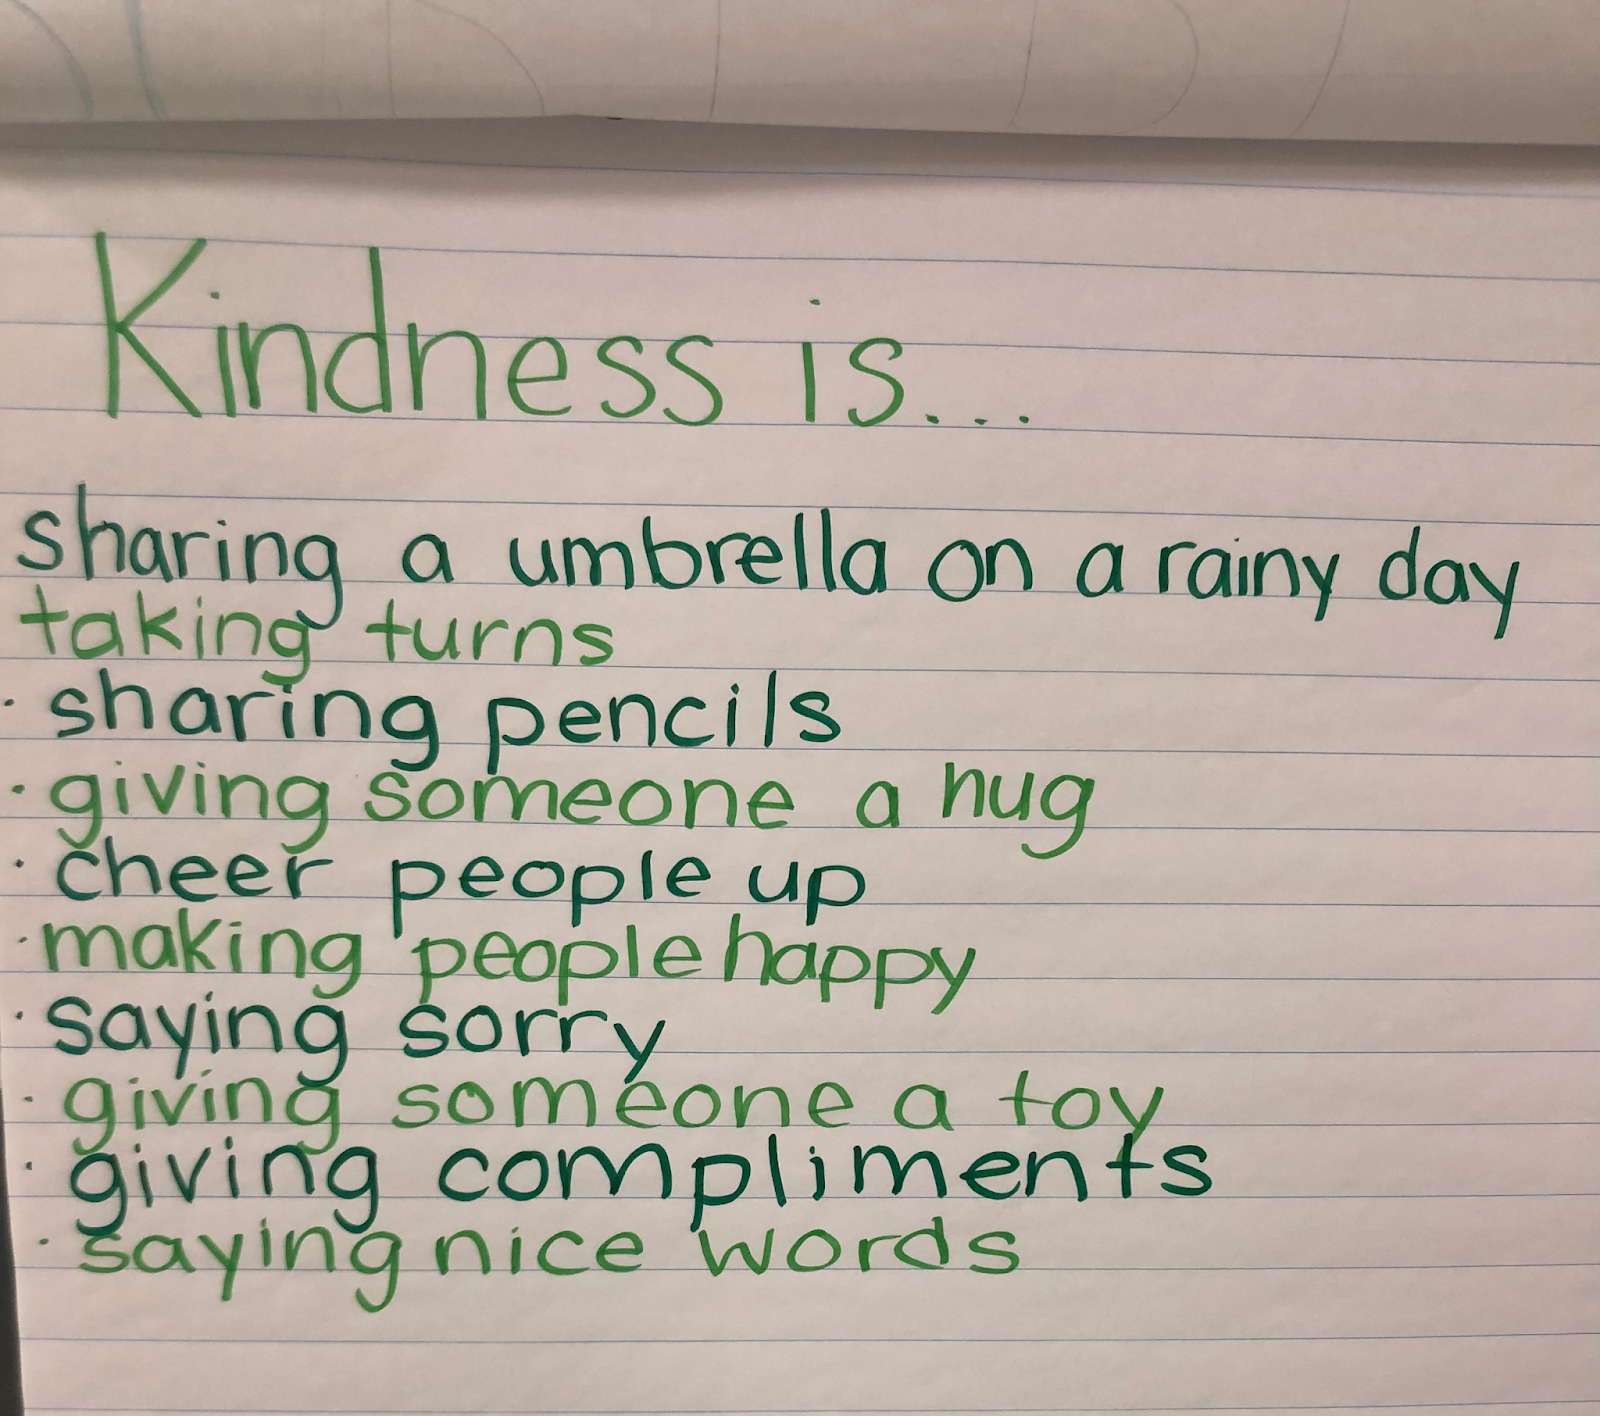 Kindness is...
sharing a umbrella on a rainy day
taking turns
· sharing pencils
· giving someone a hug
· cheer people up
· making people happy
· saying sorry
· giving someone a toy
· giving compliments
· saying nice words